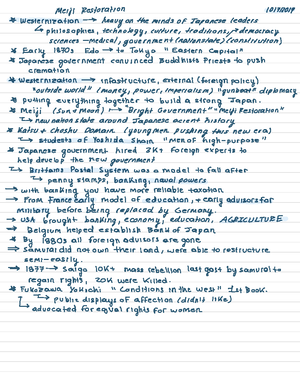 Meiji Restoration 10/17/2019
* Westernization → heavy on the minds of Japanese leaders
↳ philosophies, technology, culture, traditions, democracy
sciences → medical, government (nation/state) (constitution)
* Early 1870s Edo → to Tokyo "Eastern Capital"
* Japanese government convinced Buddhists Priests to push
cremation
* Westernization → infrastructure, external (foreign policy)
"outside world" (money, power, imperialism) "gunboat" diplomacy
* putting everything together to build a strong Japan.
* Meiji (Sun & Moon) → "Bright Government" "Meiji Restoration"
↳ new nation state around Japanese ancient history
* Katsu & Choshu Domain. (young men pushing this new era)
↳ students of Yoshida Shoin "men of high-purpose"
* Japanese government hired 2K+ foreign experts to
help develop the new government
↳ Brittons Postal System was a model to follow after
↳ penny stamps, banking, naval powers
→ with banking you have more reliable taxation
→ From France early model of education, + early advisors for
military before being replaced by Germany.
→ USA brought banking, economy, education, AGRICULTURE
→ Belgium helped establish Bank of Japan
* By 1880s all foreign advisors are gone
→ Samurai did not own their land, were able to restructure
semi-easily.
→ 1877 → Saigo 10K+ mass rebellion last gasp by samurai to
regain rights, 20K were killed.
* Fukuzawa Yukichi "Conditions in the West" 1st Book.
↳ public displays of affection (didn't like)
↳ advocated for equal rights for women